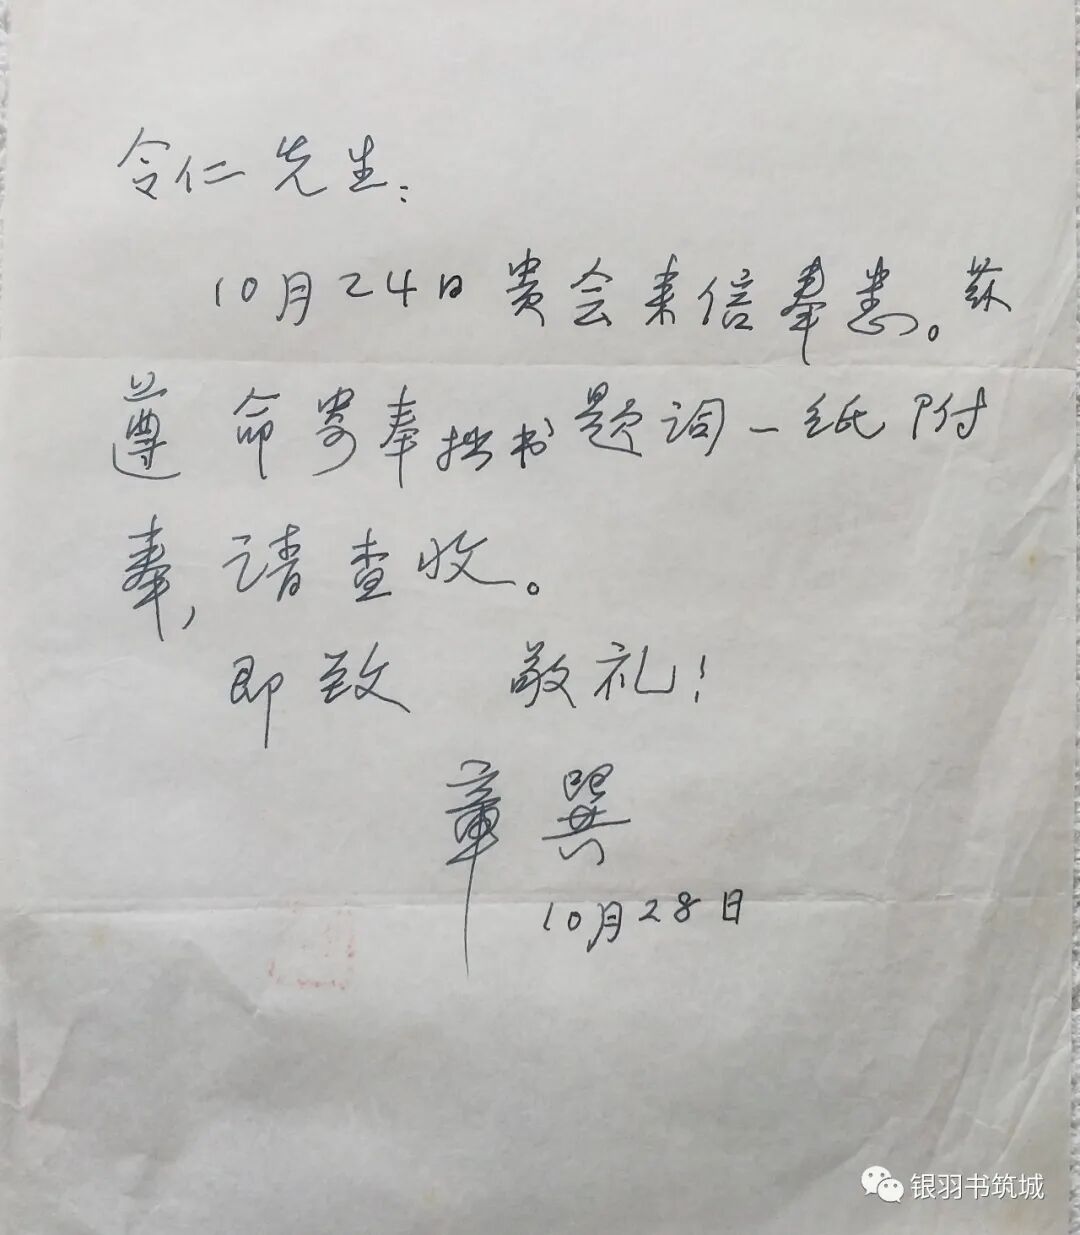 令仁先生：
10月24日贵会来信奉悉。兹
遵命寄奉拙书题词一纸附
奉，请查收。
即致 敬礼！
章巽
10月28日
银羽书筑城